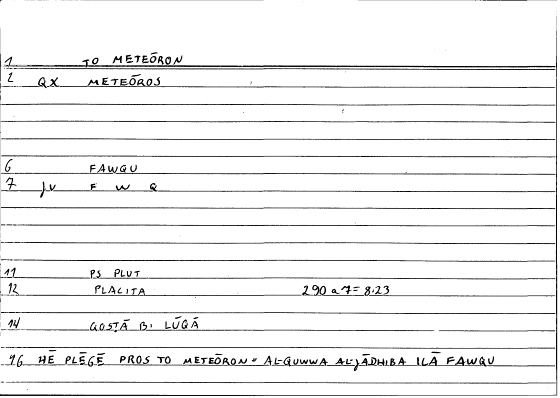 1 TO METEŌRON
2 QX METEŌROS
6 FAWQU
7 JV F W Q
11 PS PLUT
12 PLACITA 290 a 7 = 8.23
14 QOSṬĀ B. LŪQĀ
16 HĒ PLĒGĒ PROS TO METEŌRON = AL-QUWWA AL-JĀDHIBA ILĀ FAWQU